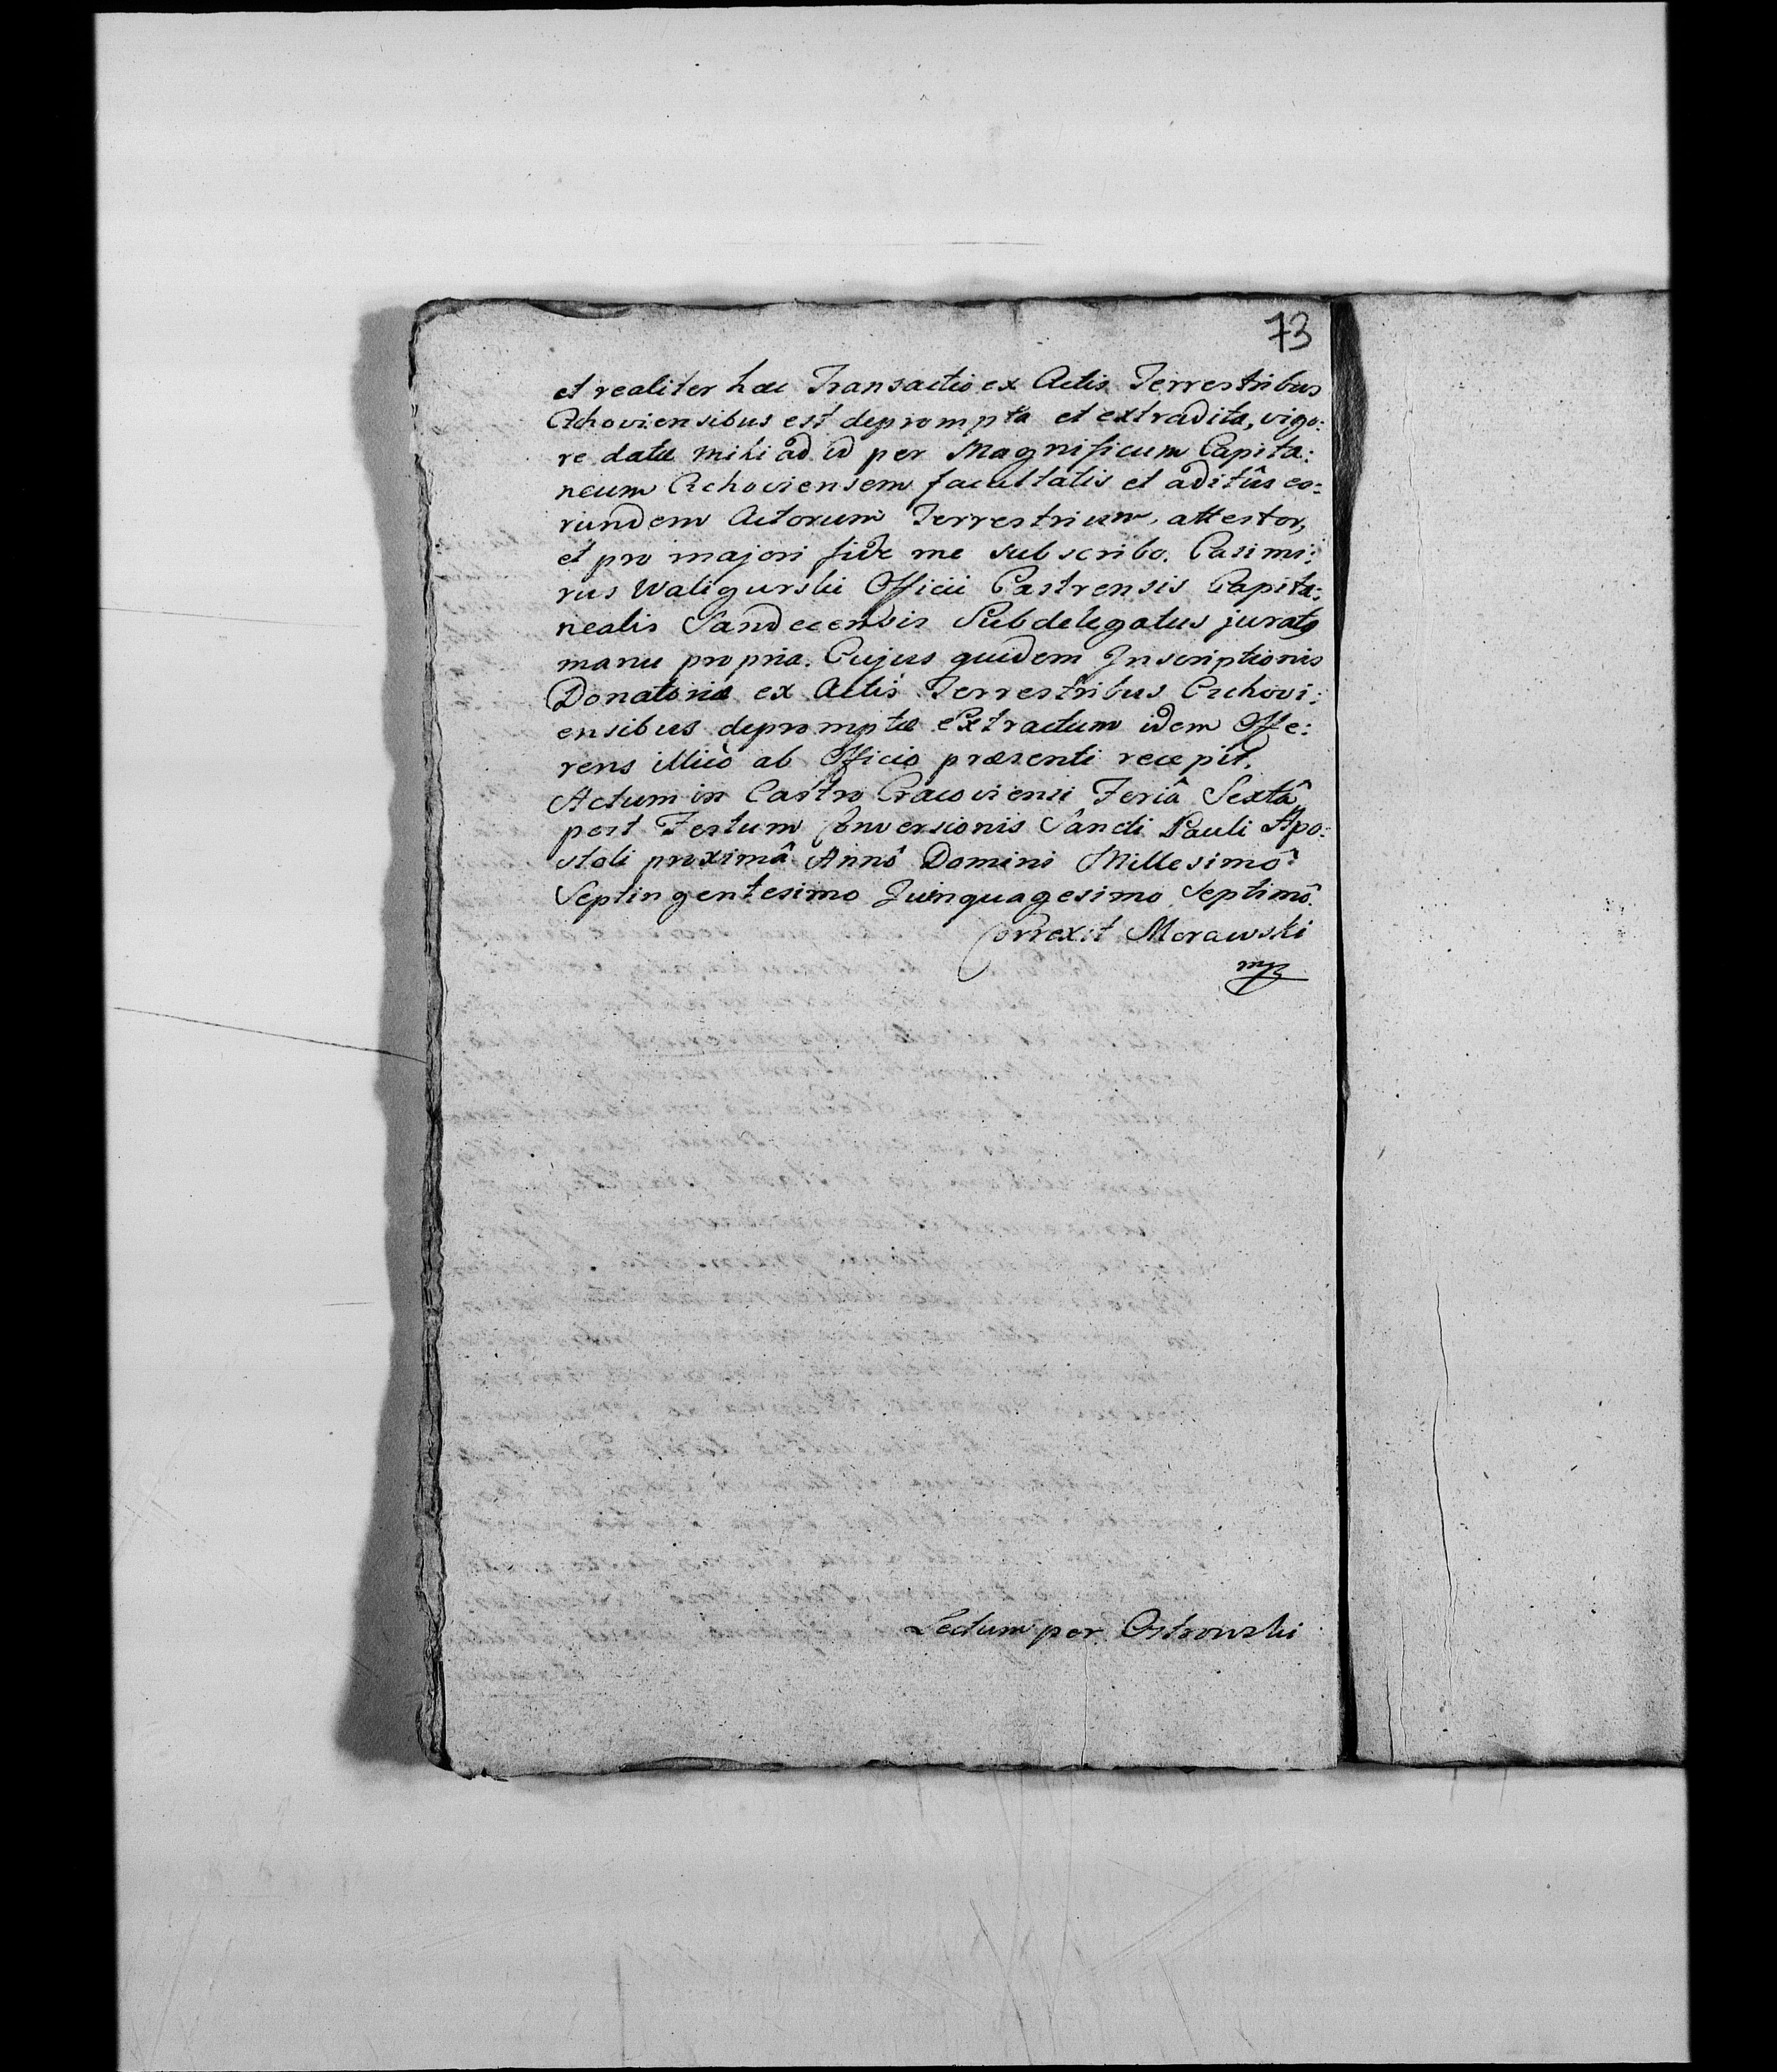 73
et realiter hæc Transactio ex Actis Terrestribus
Czchoviensibus est deprompta et extradita, vigo:
re datæ mihi ad id per Magnificum Capita:
neum Czchoviensem facultatis et aditûs eo:
rundem Actorum Terrestrium, attestor,
et pro majori fide me subscribo. Casimi:
rus Waligurski Officii Castrensis Capita:
nealis Sandecensis Subdelegatus juratq
manu propria. Cujus quidem Inscriptionis
Donatoriæ ex Actis Terrestribus Czchovi:
ensibus depromptæ Extractum idem Offe:
rens illicò ab Officio præsenti recepit.
Actum in Castro Cracoviensi Feriâ Sextâ
post Festum Conversionis Sancti Pauli Apo:
stoli proximâ Annô Domini Millesimô
Septingentesimo Quinquagesimo Septimô.
Correxit Morawski
mp
Lectum per Ostrowski